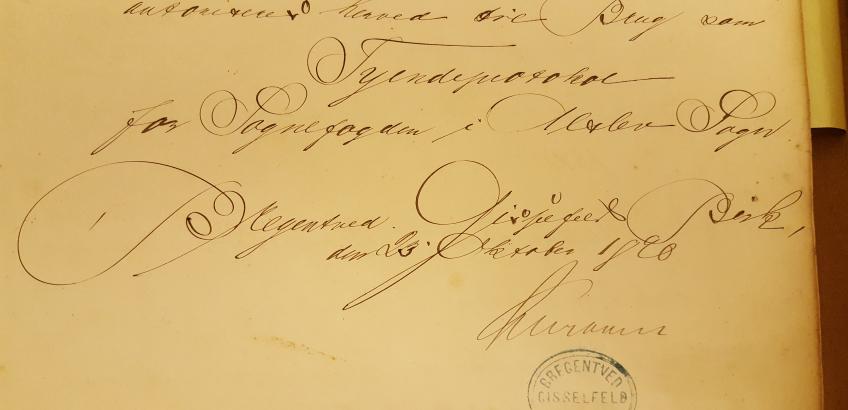 autoriseres herved til Brug som
Tyendeprotokol
for Sognefogden i Alslev Sogn.
Bregentved Gisselfeld Birk,
den 23 Oktober
BREGENTVED
GISSELFELD